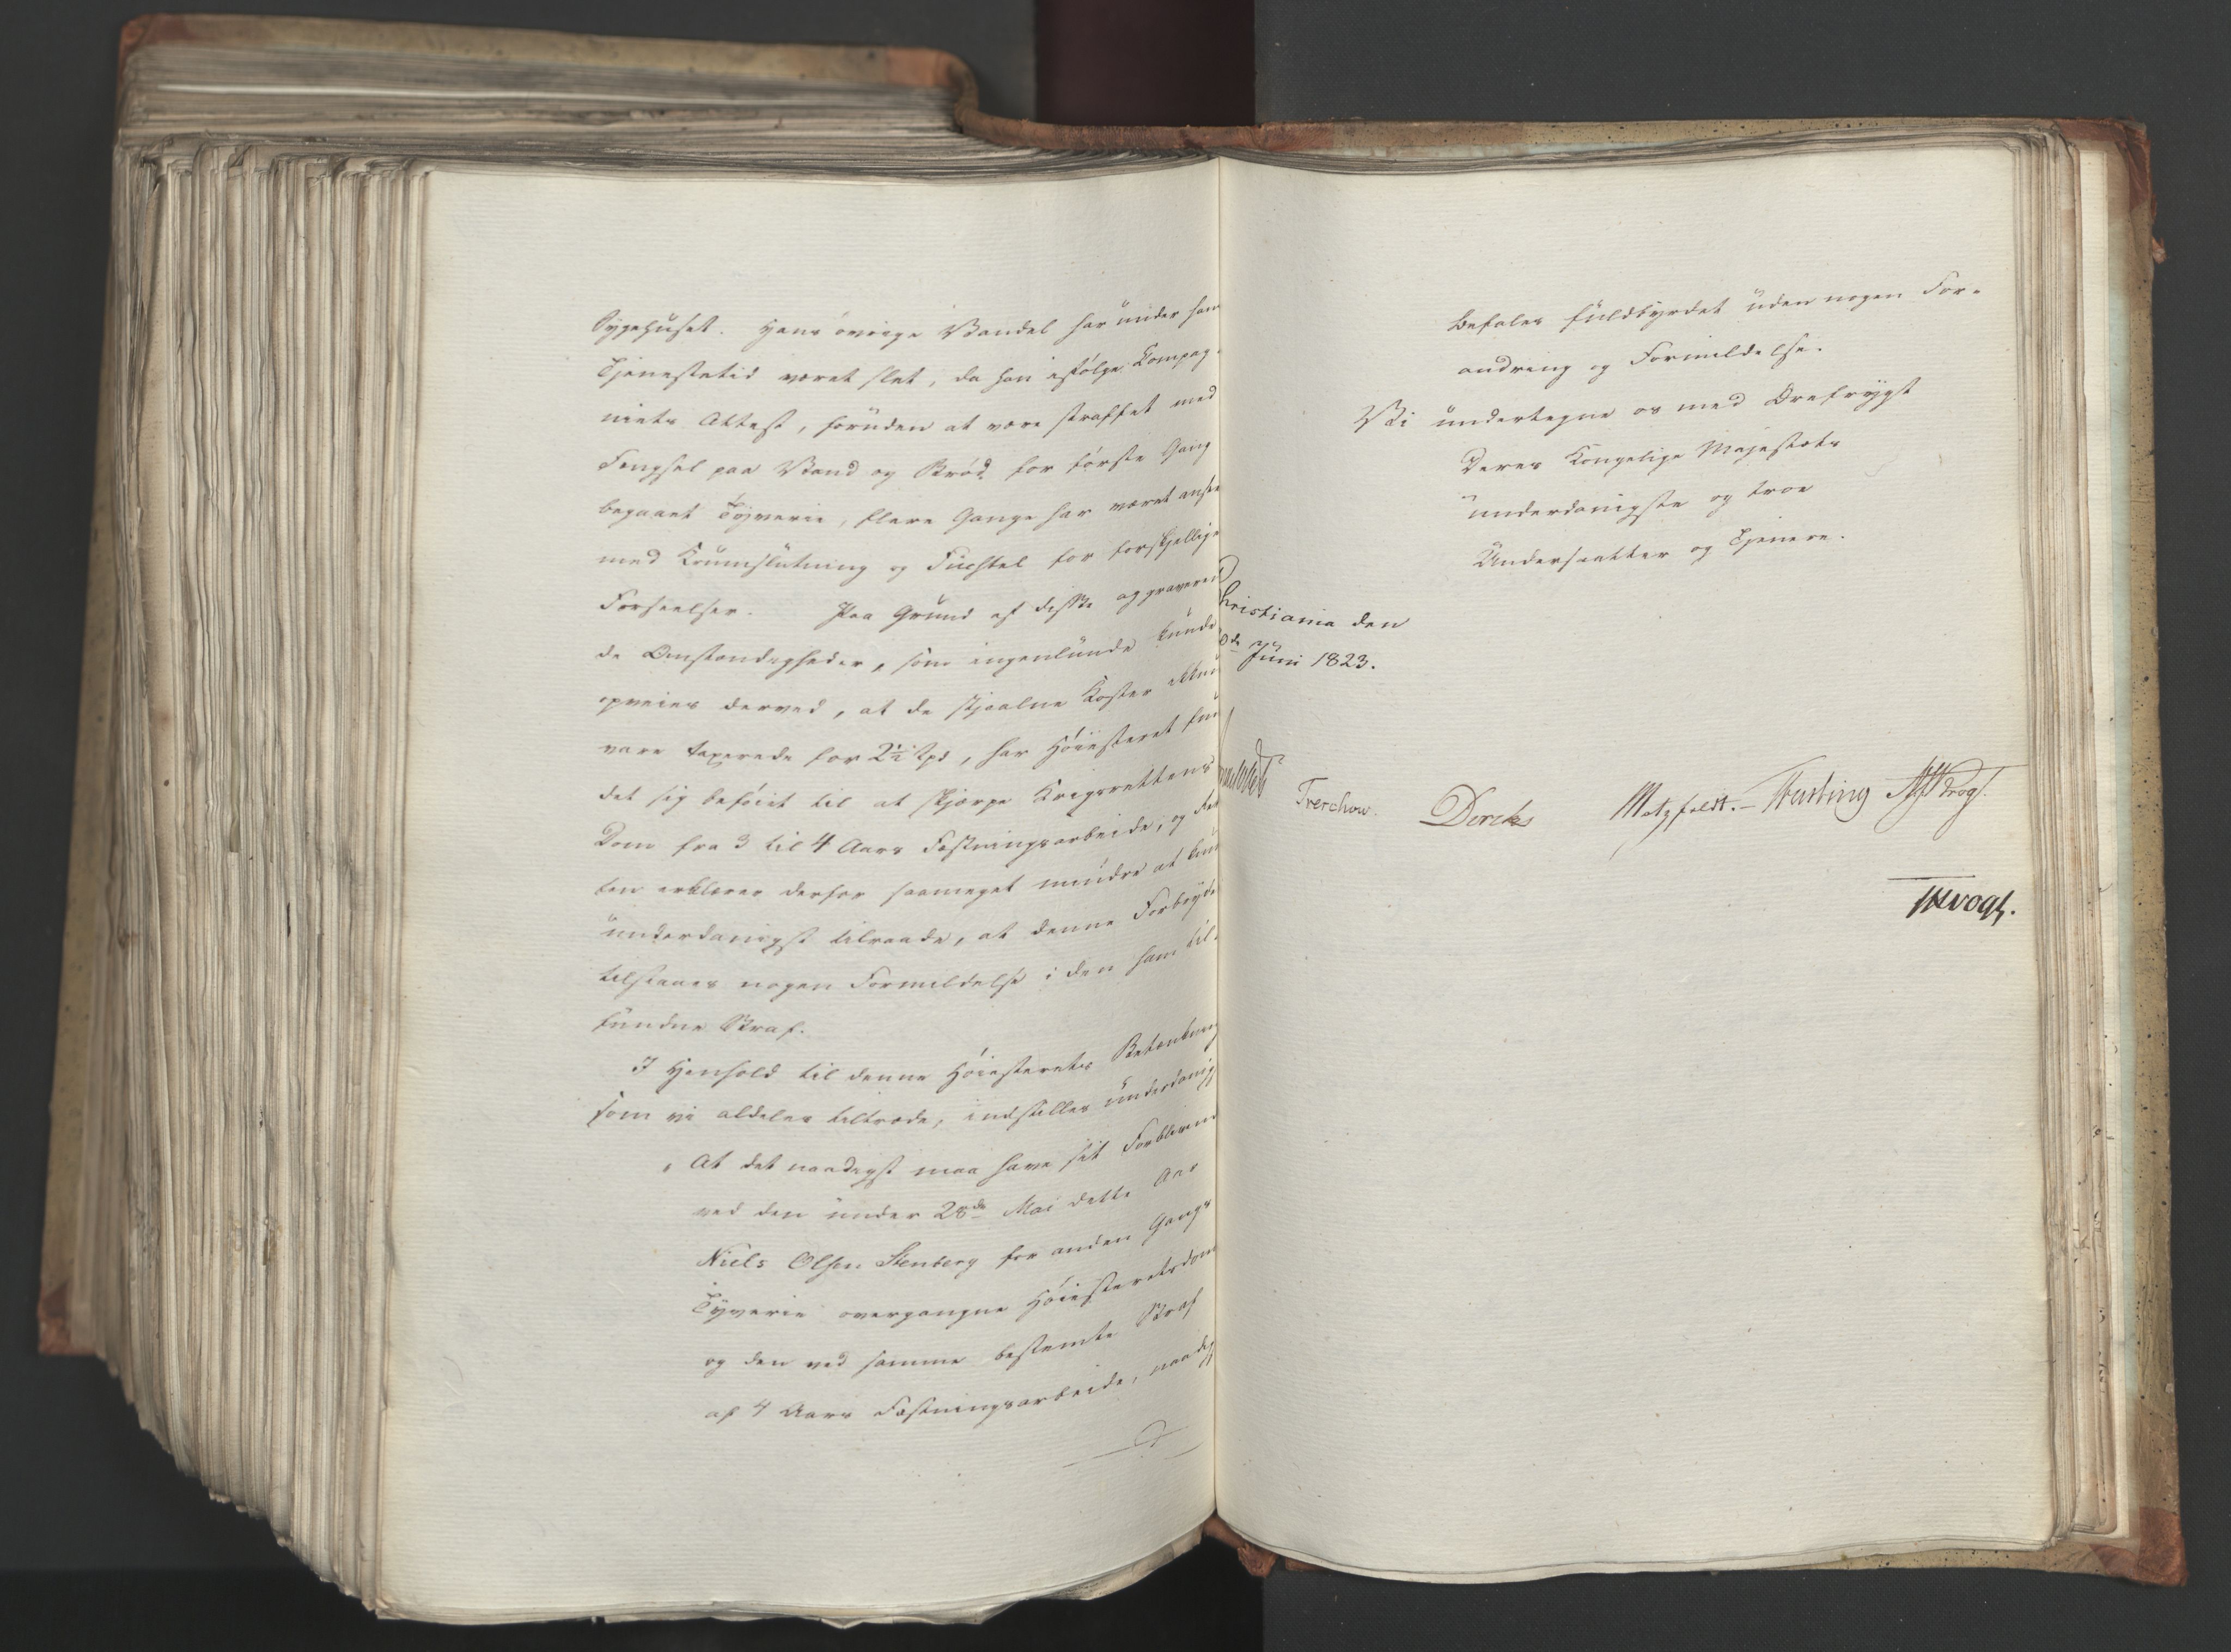 Sygehuset. Hans øvrige Vandel har under hans
Tjenestetid været slet, da han ifølge Kompag-
niets Attest, foruden at være straffet med
Fengsel paa Vand og Brød for første Gang
begaaet Tyverie, flere Gange har været anseet
med Krumslutning og Fuchtel for forskjellige
Forseelser. Paa Grund af disse aggraveren-
de Omstændigheder, som ingenlunde kunde
opveies derved, at de stjaalne Koster ikkun
vare taxerede for 2½ Spd, har Høiesteret fun-
det sig beføiet til at skjærpe Krigsrettens
Dom fra 3 til 4 Aars Fæstningsarbeide, og Ret-
ten erklærer derfor saameget mindre at kunne
underdanigst tilraade, at denne Forbryder
tilstaaes nogen Formildelse i den ham til-
fundne Straf.
I Henhold til denne Høiesterets Betænkning
som vi aldeles tiltræde, indstilles underdanigst
At det naadigst maa have sit Forblivende
ved den under 28de Mai dette Aar
Niels Olsen Stenberg for anden Gangs
Tyverie overgangne Høiesteretsdom
og den ved samme bestemte Straf
af 4 Aars Fæstningsarbeide, naadigst
befales fuldbyrdet uden nogen For-
andring og Formildelse.
Vi undertegne os med Ærefrygt
Deres Kongelige Majestæts
underdanigste og troe
Undersaatter og Tjenere.
Christiania den
Juni 1823.
Treschow. Diriks Motzfeldt. Fasting Vogt
Vogt.